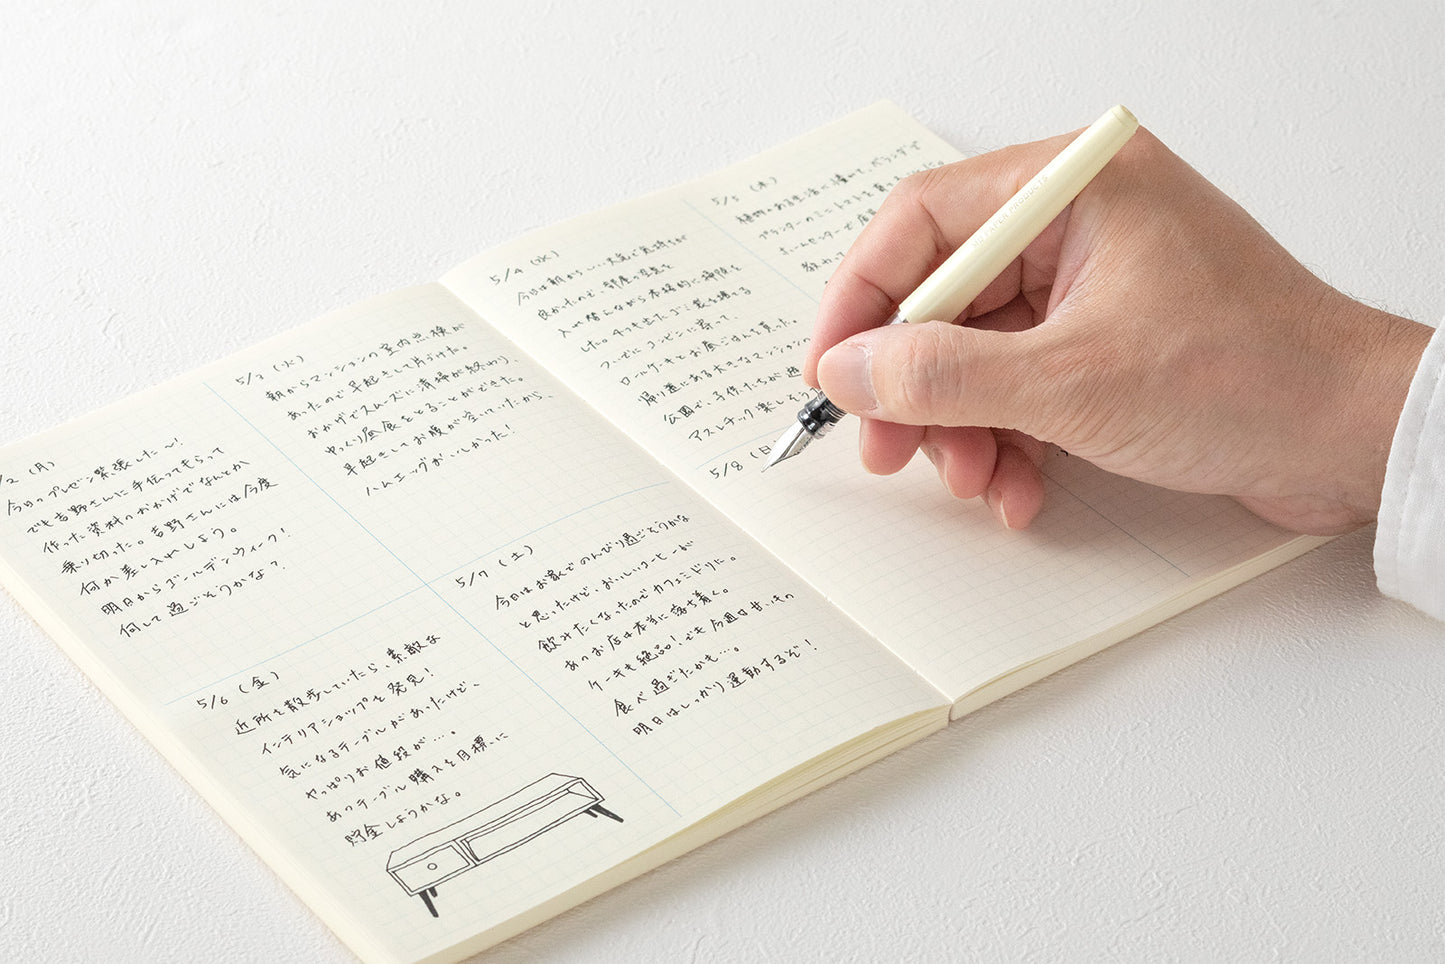 /2 (月)
今日のプレゼン緊張した〜!
でも吉野さんに手伝ってもらって
作った資料のおかげでなんとか
乗り切った。吉野さんには今度
何か差し入れしよう。
明日からゴールデンウィーク!
何して過ごそうかな?
5/3 (火)
朝からマンションの室内点検が
あったので早起きして片づけた。
おかげでスムーズに清掃が終わり、
ゆっくり昼食をとることができた。
早起きしてお腹が空いていたから、
ハムエッグおいしかった!
5/6 (金)
近所を散歩していたら、素敵な
インテリアショップを発見!
気になるテーブルがあったけど、
やっぱりお値段が…。
あのテーブル購入を目標に
貯金しようかな。
5/7 (土)
今日はお家でのんびり過ごそうかな
と思ったけど、おいしいコーヒーが
飲みたくなったのでカフェミドリに。
あのお店は本当に落ち着く。
ケーキも絶品!でも今週は甘いもの
食べ過ぎたかも…。
明日はしっかり運動するぞ!
5/4 (水)
今日は朝からいい天気で気持ちが
良かったので、部屋の空気を
入れ替えながら本格的に掃除を
した。4つも出たゴミ袋を捨てる
ついでにコンビニに寄って、
ロールケーキとお昼ごはんを買った。
帰り道にある大きなマンションの
公園で、子供たちが遊
アスレチック楽しそう
5/5 (木)
植物のある生活に憧れて、ベランダで
プランターのミニトマトを育
ホームセンターで店
教わって
5/8 (日
MD PAPER PRODUCTS